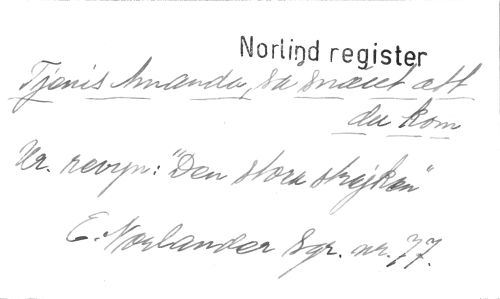 Norlind register
Tjenis Amanda, så snällt att
du kom
Ur. revyn: "Den stora strejken"
E. Norlander Sgr. nr. 77.